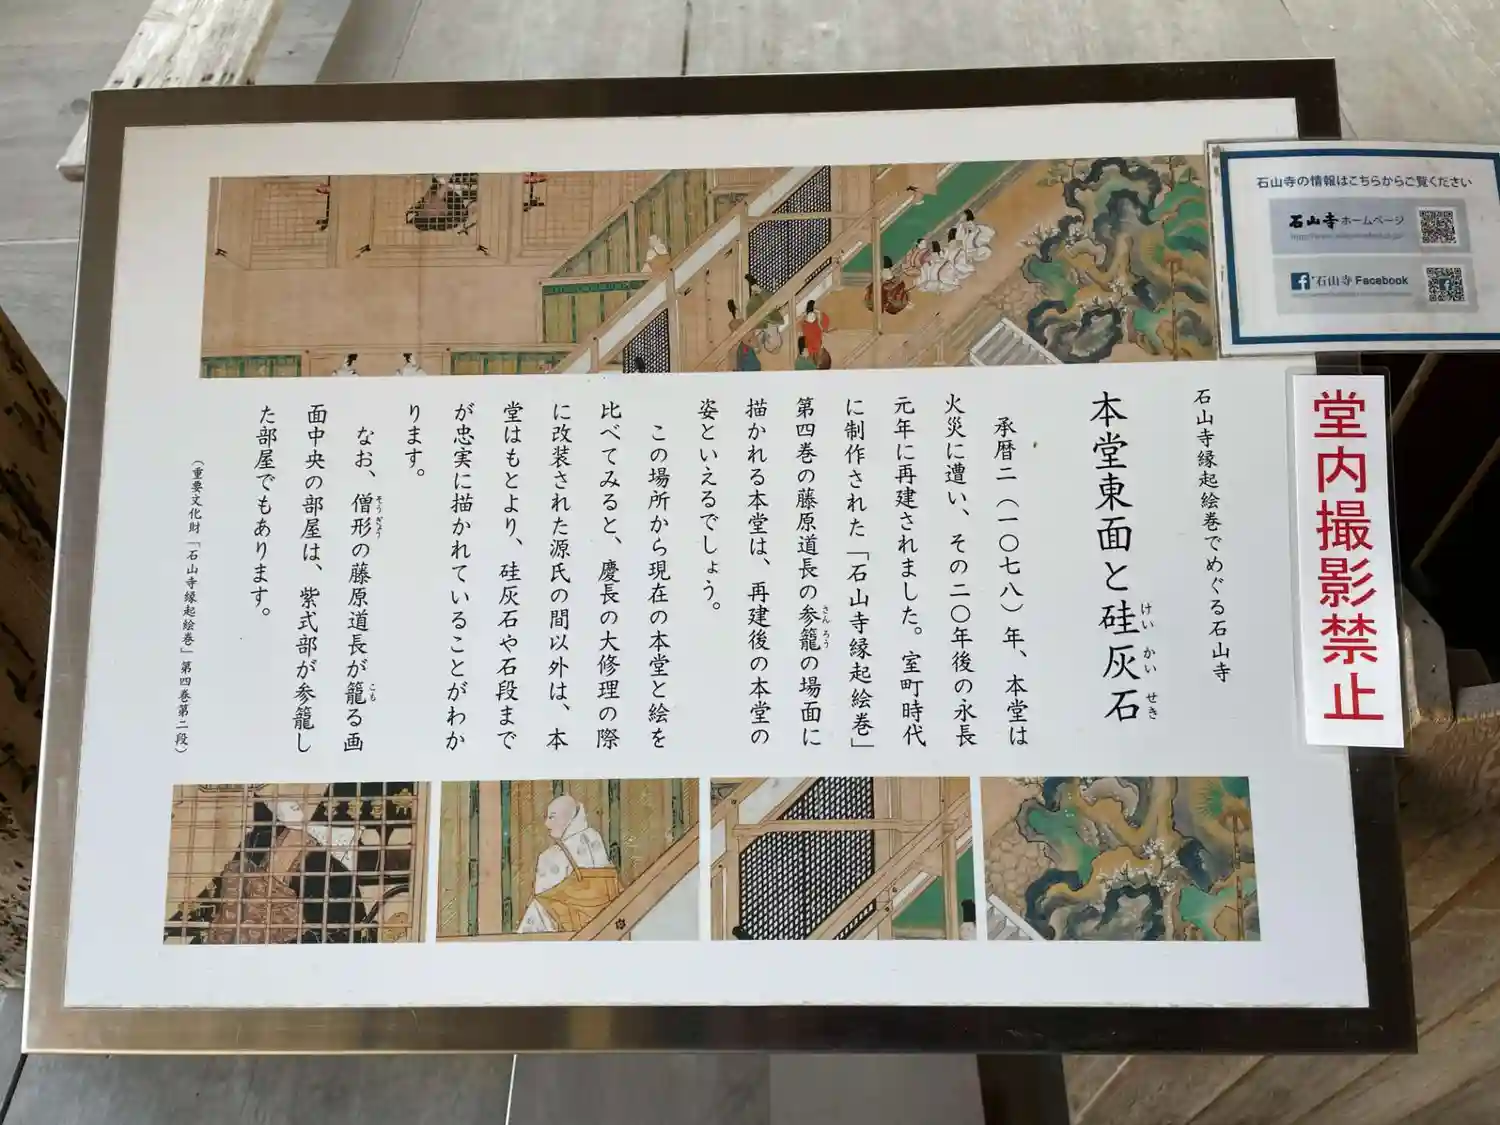 石山寺縁起絵巻でめぐる石山寺
本堂東面と硅灰石
けい かい せき
承暦二（一〇七八）年、本堂は
火災に遭い、その二〇年後の永長
元年に再建されました。室町時代
に制作された「石山寺縁起絵巻」
第四巻の藤原道長の参籠の場面に
さんろう
描かれる本堂は、再建後の本堂の
姿といえるでしょう。
この場所から現在の本堂と絵を
比べてみると、慶長の大修理の際
に改装された源氏の間以外は、本
堂はもとより、硅灰石や石段まで
が忠実に描かれていることがわか
ります。
なお、僧形の藤原道長が籠る画
そうぎょう こも
面中央の部屋は、紫式部が参籠し
た部屋でもあります。
（重要文化財「石山寺縁起絵巻」第四巻第二段）
石山寺の情報はこちらからご覧ください
石山寺ホームページ
石山寺Facebook
堂内撮影禁止